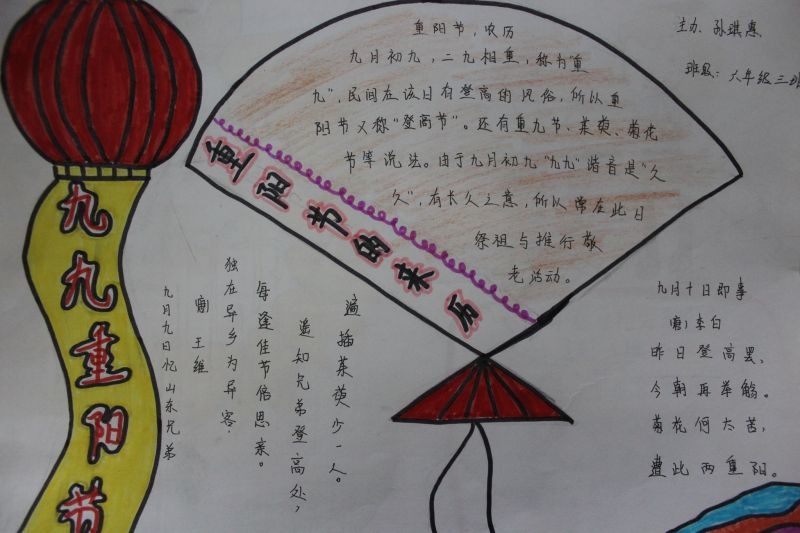 九九重阳节
重阳节的来历
重阳节,农历
九月初九,二九相重,称为重
九",民间在该日有登高的风俗,所以重
阳节又称"登高节"。还有重九节、茱萸、菊花
节等说法。由于九月初九"九九"谐音是"久
久",有长久之意,所以常在此日
祭祖与推行敬
老活动。
主办:孙琪惠
班级:六年级三班
九月九日忆山东兄弟
(唐)王维
独在异乡为异客.
每逢佳节倍思亲。
遥知兄弟登高处,
遍插茱萸少一人。
九月十日即事
(唐)李白
昨日登高罢,
今朝再举觞。
菊花何太苦,
遭此两重阳。